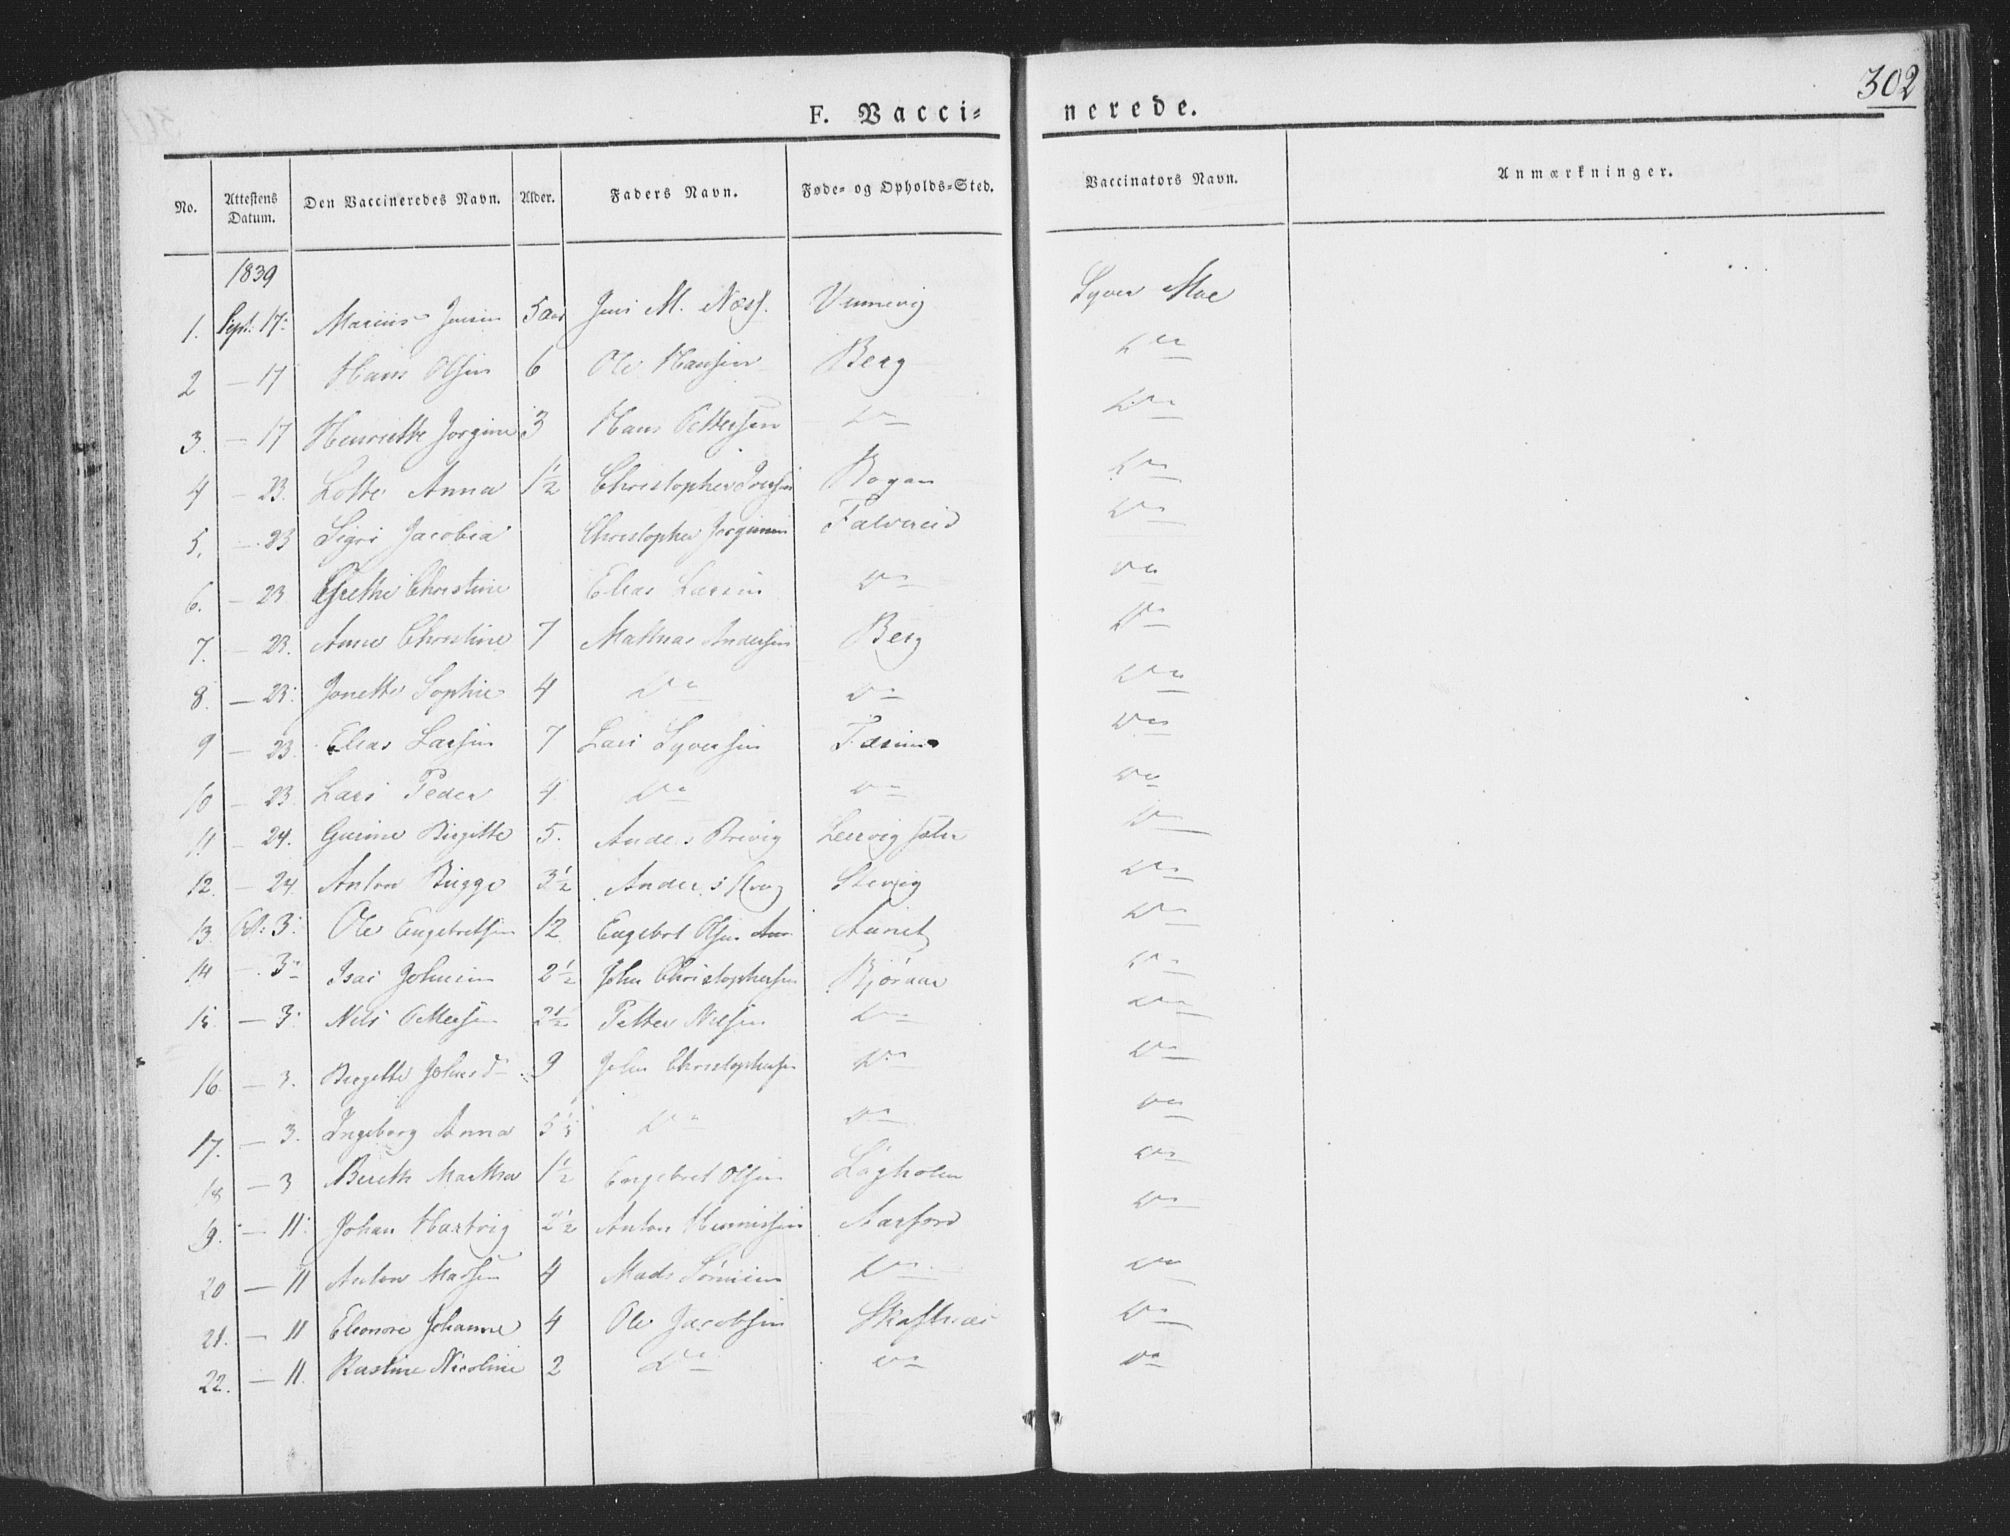 302
F. Vaccinerede.
No. Attestens Datum. Den Vaccineredes Navn. Alder. Faders Navn. Føde- og Opholds-Sted. Vaccinators Navn. Anmærkninger.
1839
1. Sept: 17: Marius Jensen 5 Aar Jens M. Næss. Vennevig Syver Moe
2 — 17 Hans Olsen 6 Ole Hansen Berg do
3. — 17 Henriette Jorgine 3 Hans Pettersen do do
4 — 23. Lotte Anna 1½ Christopher Rogan do
5. — 23 Sigri Jacobia Christopher Jorginsen do
6. — 23 Grethe Christine Elias Larsen do do
7. — 23. Anne Christine 7 Mathias Andersen Berg do
8. — 23. Jonette Sophie 4 do do do
9 — 23. Elias Larsen 7 Lars Syversen do
10 — 23. Lars Peder 4 do do do
11 — 24. Birgitte 5. Anders Brevig do
12. — 24. Anton Bugge 3½ Anders do
13. Oct: 3. Ole Engebretsen 12 Engebret Olsen Aunet do
14 — 3 Isac Johnsen 2½ John Christophersen Björaae do
15 — 3. Nils Pettersen 2½ Petter Nilsen do do
16. — 3. Birgitte Johnsd 9 John Christophersen do do
17. — 3. Ingeborg Anna 5½ do do do
18 — 3 Bereth Martha 1½ Engebret Olsen Lögholm do
19. — 11. Johan Hartvig 2½ Anton Aarfor do
20 — 11 Anton Madsen 4 Mads do do
21. — 11 Eleonore Johanne 4 Ole Jacobsen do
22. — 11. Nicoline 2 do do do